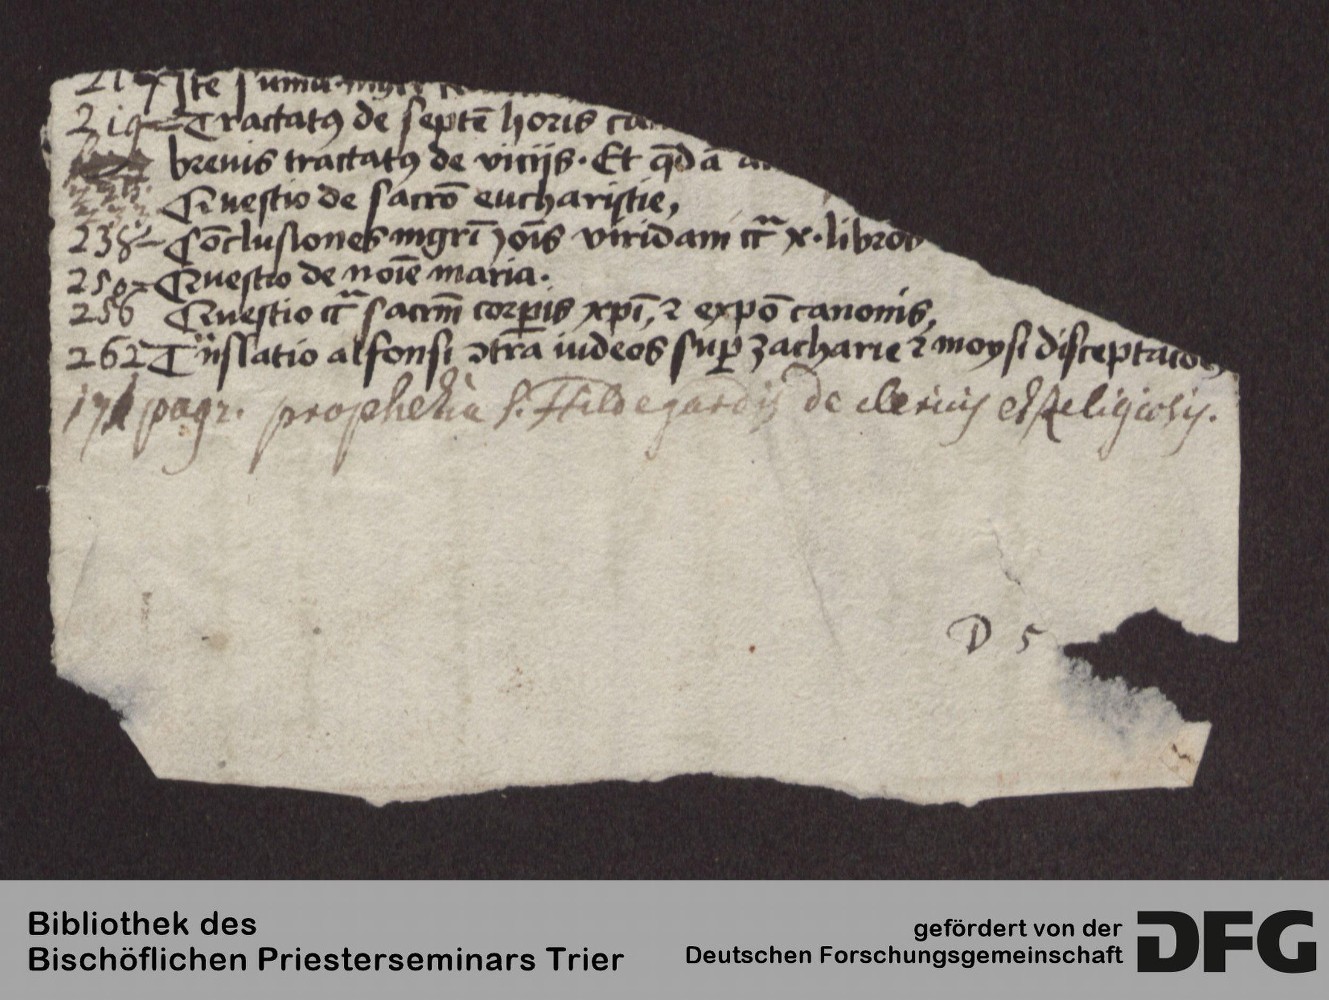 Itē suma mgri
219 Tractatꝰ de septē horis
brevis tractatꝰ de vicijs. Et qdā
Questio de sacrō eucharistie,
238 Cōclusiones mgri joīs viridam cͬᷓ x. libros
250 Questio de noīe maria.
256 Questio cͬᷓ sacrm̄ corpis xpī, ⁊ expō canonis,
262 Tnslatio alfonsi ↄtra iudeos sup zacharie ⁊ moysi disceptatōe
171 pagr. prophetia S. Hildegardis de clericis et Religiosis.
D 5
Bibliothek des
Bischöflichen Priesterseminars Trier
gefördert von der
Deutschen Forschungsgemeinschaft
DFG